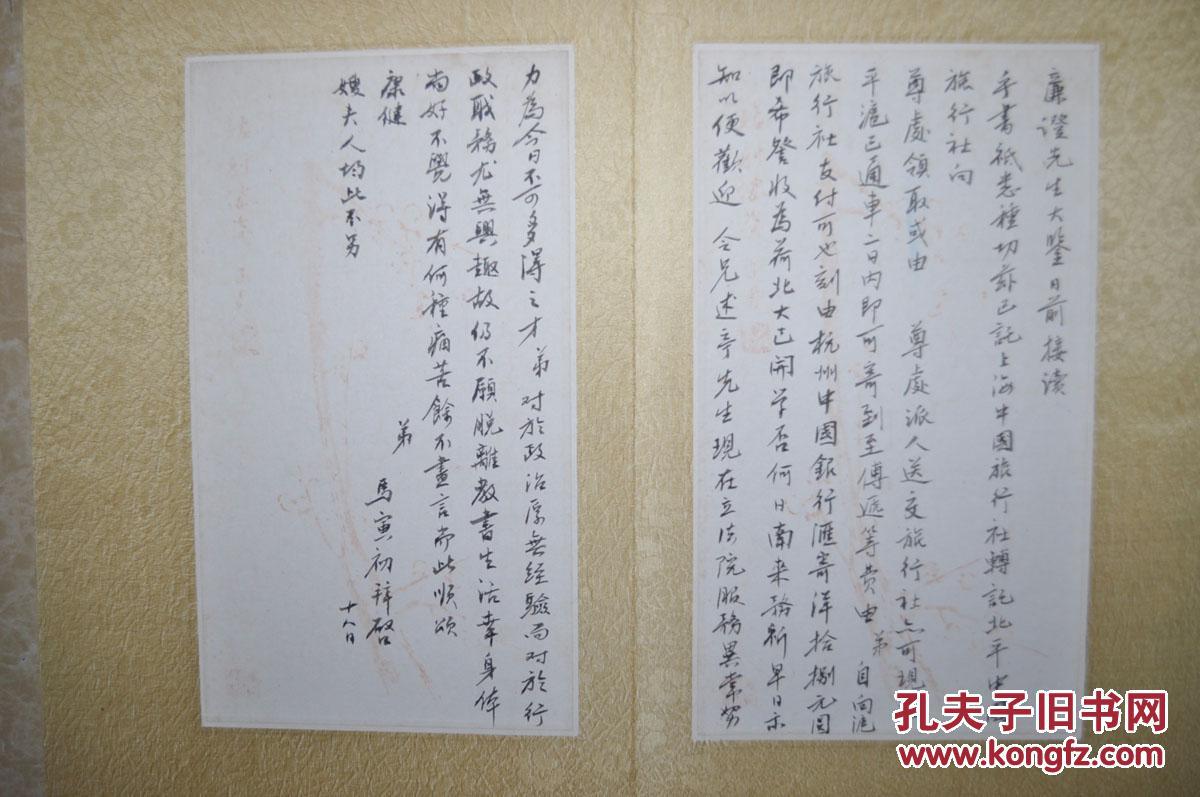 廉澄先生大鑒日前接讀
手書祇悉種切茲已託上海中國旅行社轉託北平中國
旅行社向
尊處領取或由 尊處派人送交旅行社亦可現
平滬已通車二日內即可寄到至傳遞等費由弟自向滬
旅行社支付可也刻由杭州中國銀行匯寄洋拾捌元囯
即希詧收為荷北大已開学否何日南来務祈早日示
知以便歡迎 令兄述亭先生現在立法院服務異常努
力為今日不可多得之才 弟對於政治原無經驗而對於行
政職務尤無興趣故仍不願脫離教書生活幸身体
尚好不覺得有何種痛苦餘不盡言耑此順頌
康健
嫂夫人均此不另
弟 馬寅初拜啓
十八日
孔夫子旧书网
www.kongfz.com